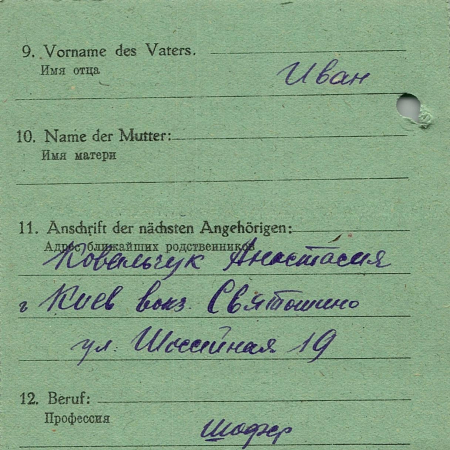 9. Vorname des Vaters.
Имя отца
Иван
10. Name der Mutter:
Имя матери
11. Anschrift der nächsten Angehörigen:
Адрес ближайших родственников
Ковальчук Анастасия
г Киев вокз. Святошино
ул. Шоссейная 19
12. Beruf:
Профессия
шофер